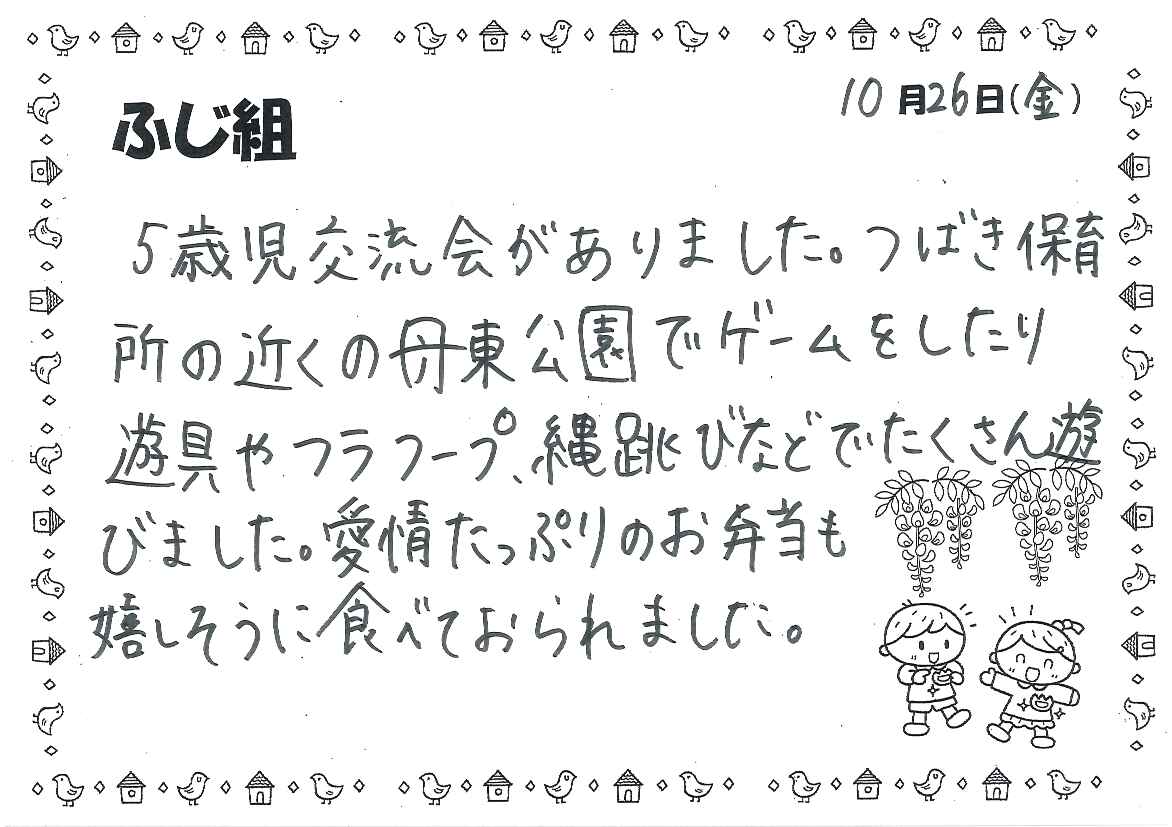 ふじ組
10月26日(金)
5歳児交流会がありました。つばき保育
所の近くの丹東公園でゲームをしたり
遊具やフラフープ、縄跳びなどでたくさん遊
びました。愛情たっぷりのお弁当も
嬉しそうに食べておられました。